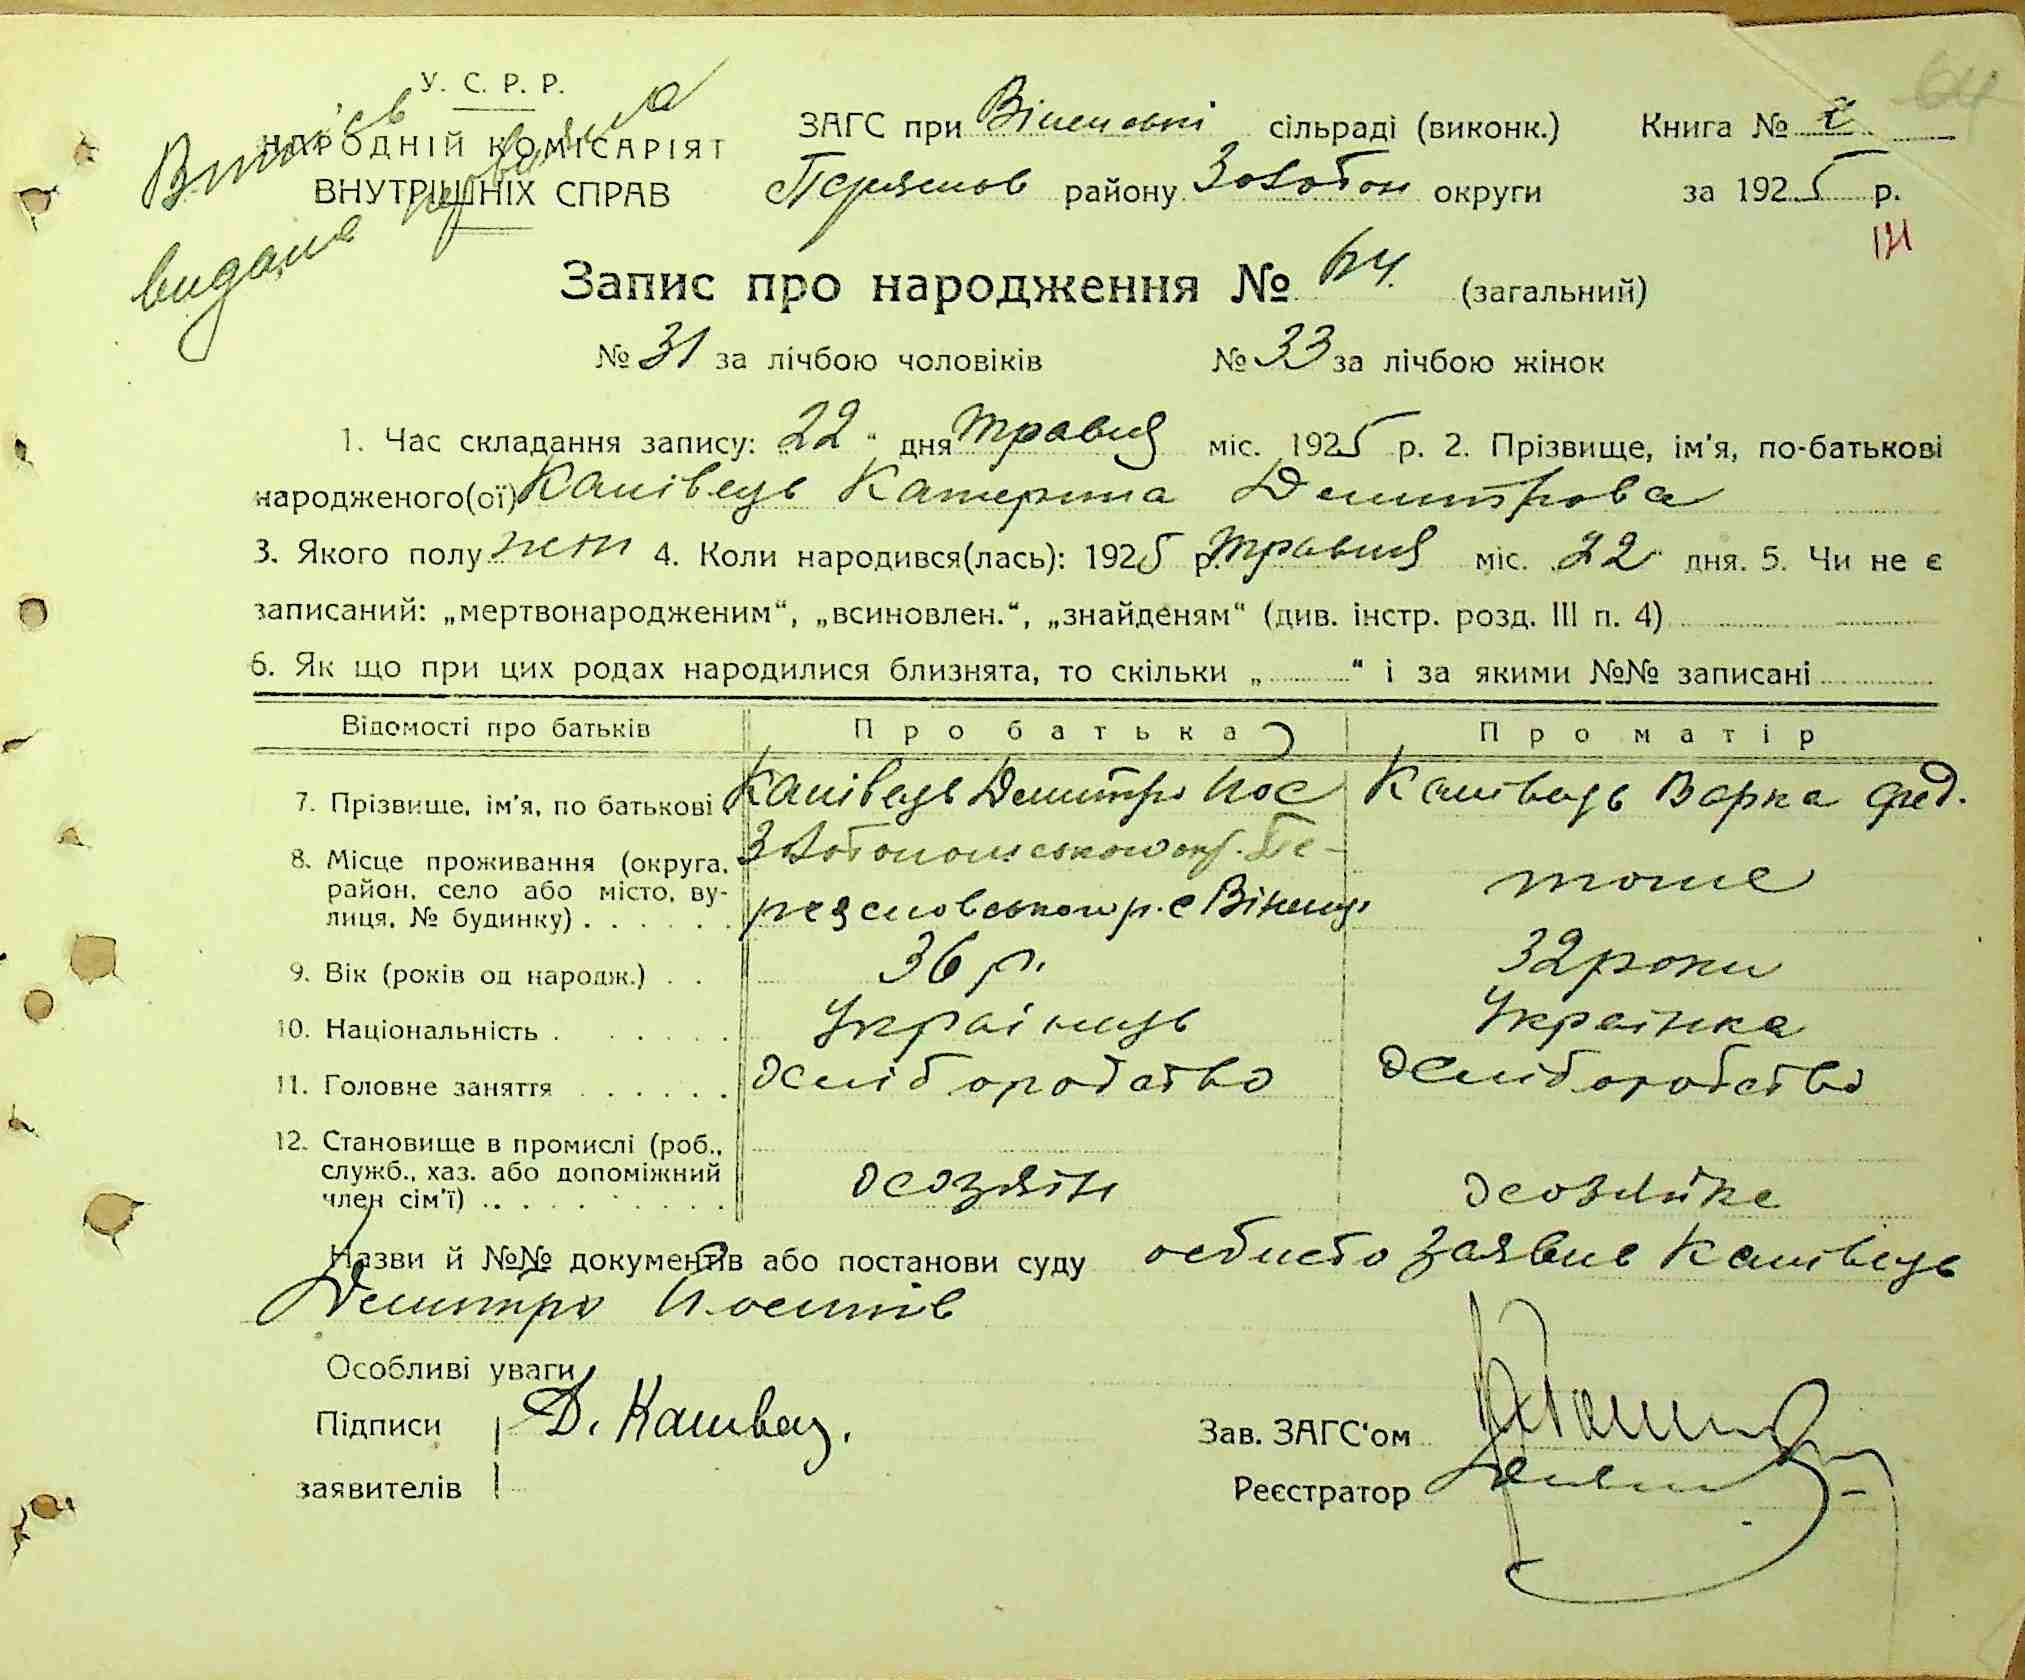 64
У. С. Р. Р.
НАРОДНІЙ КОМІСАРІЯТ
ВНУТРІШНІХ СПРАВ
видана
ЗАГС при Віненські сільраді (виконк.) Книга №
району Золотон округи за 1925 р.
121
Запис про народження № 64. (загальний)
№ 31 за лічбою чоловіків № 33 за лічбою жінок
1. Час складання запису: 22 " дня травня міс. 1925 р. 2. Прізвище, ім'я, по-батькові
народженого(ої) Канівець Катерина Демитрова
3. Якого полу жін 4. Коли народився(лась): 1925 р. травня міс. 22 " дня. 5. Чи не є
записаний: „мертвонародженим“, „всиновлен.“, „знайденям“ (див. інстр. розд. III п. 4)
6. Як що при цих родах народилися близнята, то скільки „ “ і за якими №№ записані
Відомості про батьків Про батька Про матір
7. Прізвище, ім'я, по батькові Канівець Демитро Йос Канівець Варка Фед.
8. Місце проживання (округа, район, село або місто, вулиця, № будинку) Золотоношськои окр. Пе-
реяславського р. с Вінинці тоже
9. Вік (років од народж.) 36 р. 32 роки
10. Національність Українець Українка
11. Головне заняття хліборобство хліборобство
12. Становище в промислі (роб., служб., хаз. або допоміжний член сім'ї) хозяїн хозяйка
Назви й №№ документів або постанови суду особисто заявив Канівець
Демитро Йосипів
Особливі уваги
Підписи Д. Канівец.
заявителів
Зав. ЗАГС'ом
Реєстратор